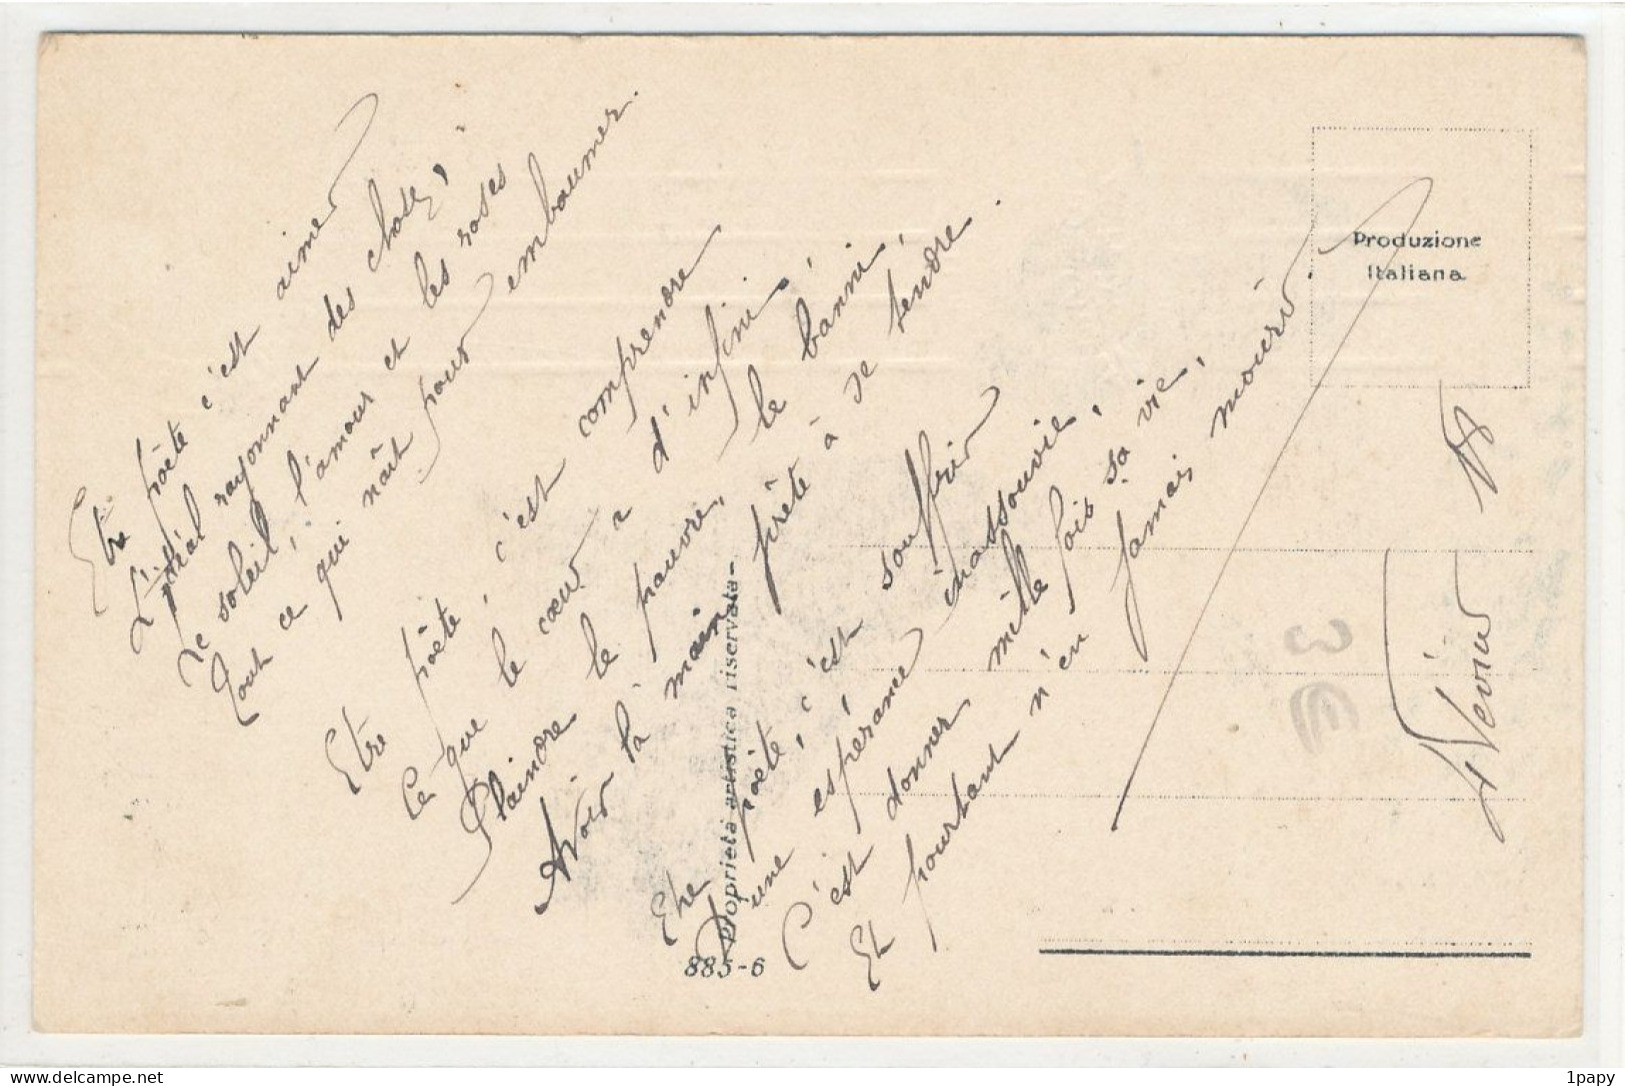 Etre poète c'est aimer
L'idéal rayonnant des choses,
Le soleil, l'amour et les roses
Tout ce qui naît pour embaumer.
Etre poète, c'est comprendre
Ce que le cœur a d'infini,
Plaindre le pauvre, le banni,
Avoir la main prête à se tendre.
Etre poète, c'est souffrir
D'une espérance inassouvie,
C'est donner mille fois sa vie,
Et pourtant n'en jamais mourir
Produzione
Italiana
Proprietà artistica riservata-
885-6
3
delcampe.net
1papy